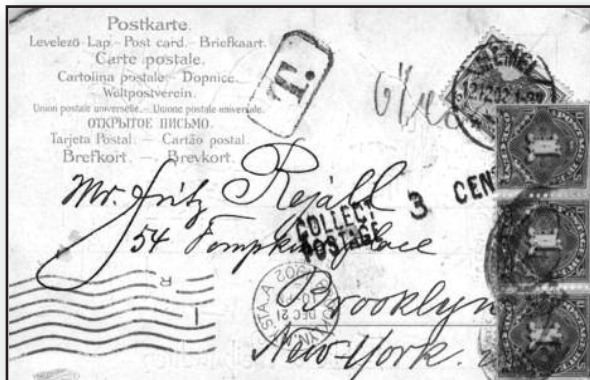 Postkarte.
Levelező Lap. – Post card. – Briefkaart.
Carte postale.
Cartolina postale. – Dopnice.
Weltpostverein.
Union postale universelle. – Unione postale universale.
ОТКРЫТОЕ ПИСЬМО.
Tarjeta Postal. – Cartão postal.
Brefkort. –. Brevkort.
T.
Mr. Fritz Rejall
COLLECT 3 CEN
POSTAGE
54 Tompkins place
Brooklyn
New-York.
STA. A.
DEC 21
1902
R
I
1
1
1